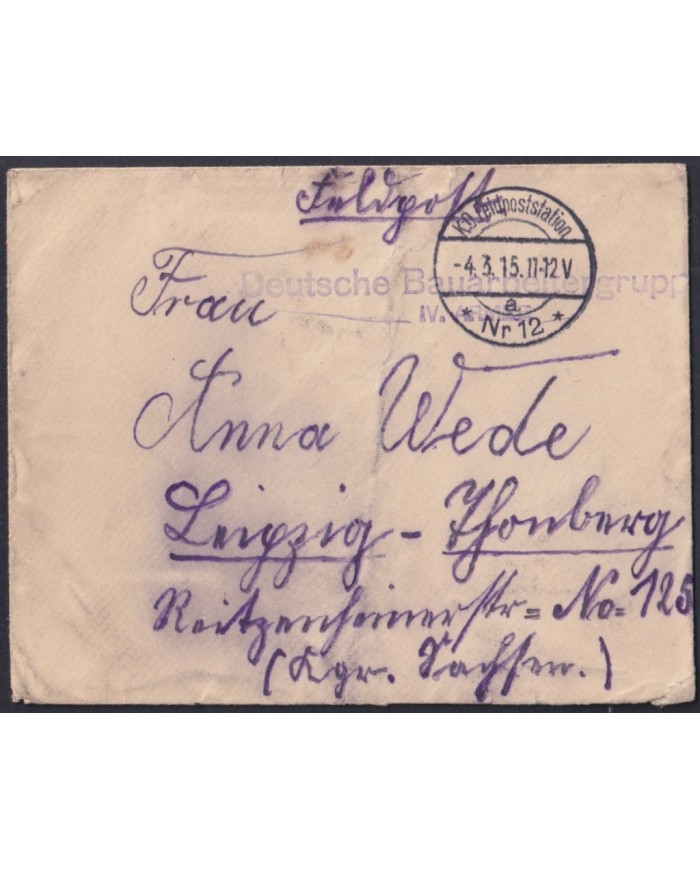 Feldpost
K.D. Feldpoststation
-4.3.15.11-12V
a
* Nr 12 *
Deutsche Bauarbeitergrupp
IV. ARMEE
Frau
Anna Wede
Leipzig - Thonberg
Reitzenheinerstr= No= 125
(Kgr. Sachsen.)